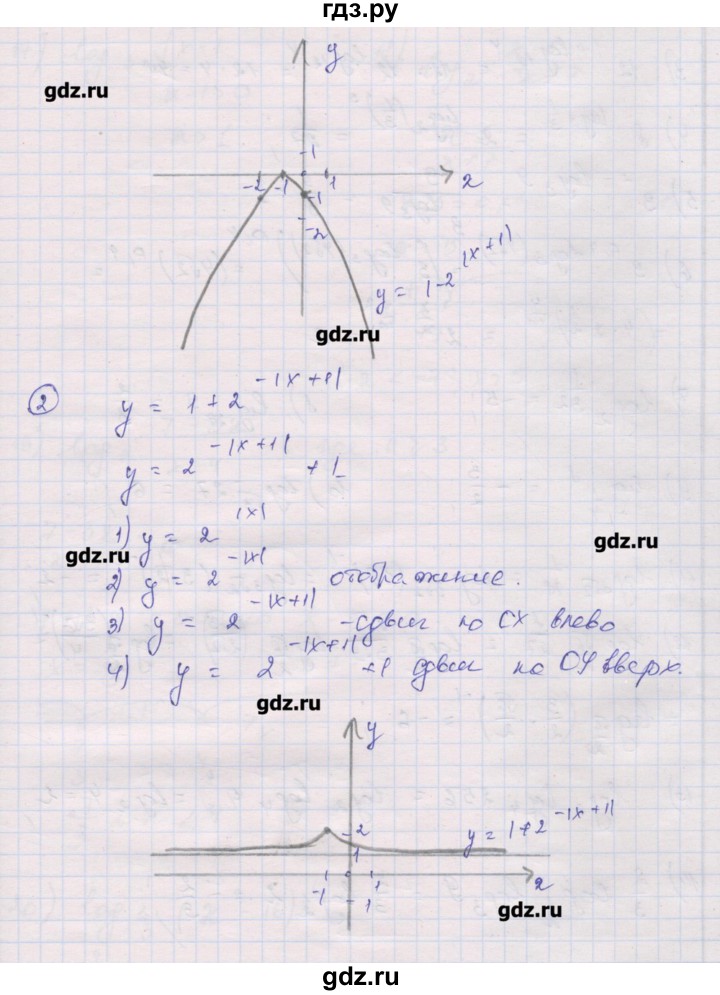 гдз.ру
y
gdz.ru
1
-2 -1 1 x
-1
-2
y = 1-2^|x+1|
gdz.ru
2 y = 1+2^-|x+1|
y = 2^-|x+1| +1
1) y = 2^|x|
gdz.ru
gdz.ru
2) y = 2^-|x| отображение.
3) y = 2^-|x+1| -сдвиг по OX влево
4) y = 2^-|x+1| +1 сдвиг по OY вверх.
gdz.ru
y
2
y = 1+2^-|x+1|
1
-1 1 x
1
gdz.ru
gdz.ru